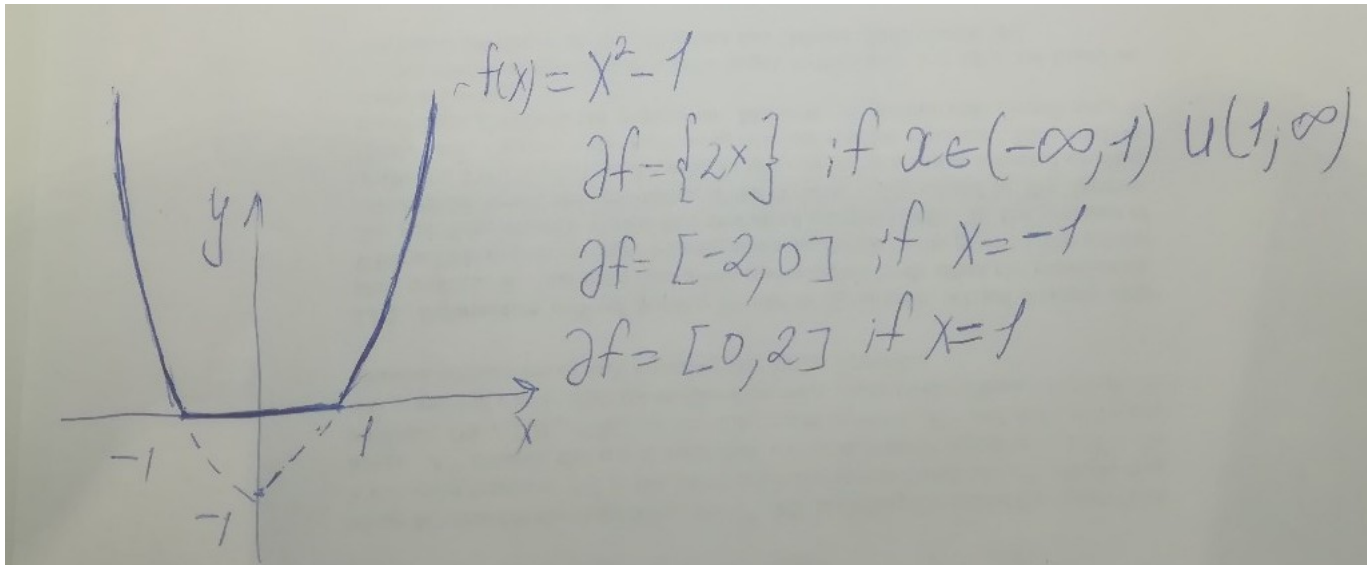 f(x) = x² - 1
∂f = {2x} if x ∈ (-∞, 1) ∪ (1, ∞)
∂f = [-2, 0] if x = -1
∂f = [0, 2] if x = 1
y
x
-1
1
-1